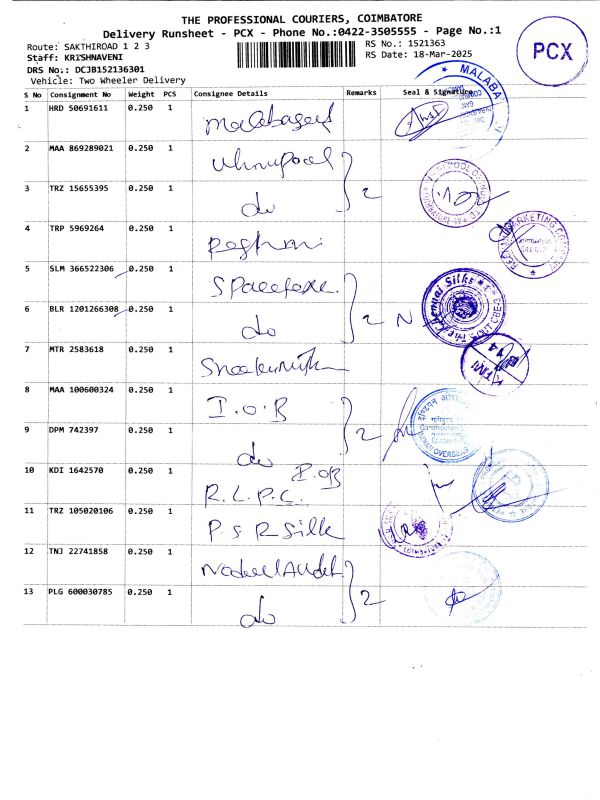 THE PROFESSIONAL COURIERS, COIMBATORE
Delivery Runsheet - PCX - Phone No.:0422-3505555 - Page No.:1
Route: SAKTHIROAD 1 2 3
RS No.: 1521363
Staff: KRISHNAVENI
RS Date: 18-Mar-2025
DRS No.: DCJB152136301
Vehicle: Two Wheeler Delivery
PCX
S No Consignment No Weight PCS Consignee Details Remarks Seal & Signature
MALABA
1 HRD 50691611 0.250 1
2 MAA 869289021 0.250 1 Whirlpool
3 TRZ 15655395 0.250 1 do 2
4 TRP 5969264 0.250 1
MARKETING
5 SLM 366522306 0.250 1
6 BLR 1201266308 0.250 1 do 2 N
The Chennai Silks
7 MTR 2583618 0.250 1
8 MAA 100600324 0.250 1 I.O.B
9 DPM 742397 0.250 1 do 2
INDIAN OVERSEAS
I.OB
10 KDI 1642570 0.250 1 R.L.P.C.
11 TRZ 105020106 0.250 1 P.S.R Silk
12 TNJ 22741858 0.250 1
13 PLG 600030785 0.250 1 do 2